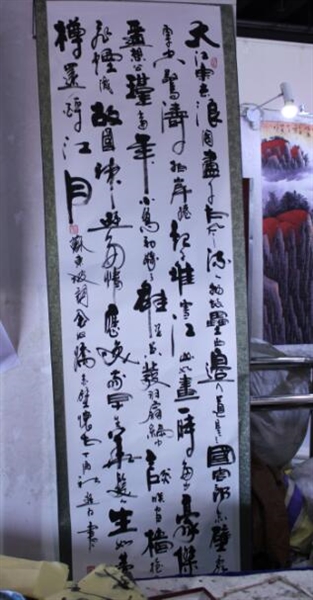 大江東去浪淘盡千古風流人物故壘西邊人道是三國周郎赤壁亂
驚濤拍岸捲起雪江山如畫一時多少豪傑
公瑾當年小喬初嫁了雄姿英發羽扇綸巾談笑間檣櫓
飛煙滅故國神遊多情應笑我早生華髮人生如夢
樽還酹江月
蘇東坡詞念奴嬌赤壁懷古丁酉書